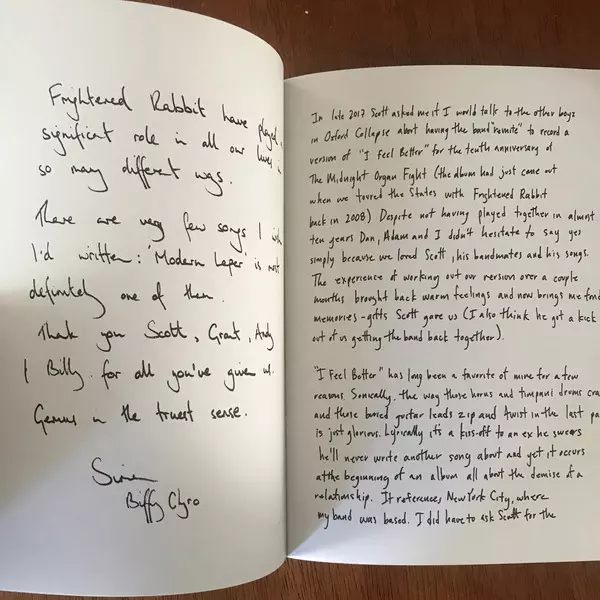 Frightened Rabbit have played a
significant role in all our lives in
so many different ways.
There are very few songs I wish
I'd written: 'Modern Leper' is most
definitely one of them.
Thank you Scott, Grant, Andy
& Billy for all you've given us.
Genius in the truest sense.
Simon
Biffy Clyro
In late 2017 Scott asked me if I would talk to the other boys
in Oxford Collapse about having the band "reunite" to record a
version of "I Feel Better" for the tenth anniversary of
The Midnight Organ Fight (the album had just come out
when we toured the States with Frightened Rabbit
back in 2008) Despite not having played together in almost
ten years Dan, Adam and I didn't hesitate to say yes
simply because we loved Scott, his bandmates and his songs.
The experience of working out our version over a couple
months brought back warm feelings and now brings me fond
memories - gifts Scott gave us (I also think he got a kick
out of us getting the band back together).
"I Feel Better" has long been a favorite of mine for a few
reasons. Sonically, the way those horns and timpani drums
and those buried guitar leads zip and twist in the last
is just glorious. Lyrically it's a kiss-off to an ex he swears
he'll never write another song about and yet it occurs
at the beginning of an album all about the demise of a
relationship. It references New York City, where
my band was based. I did have to ask Scott for the